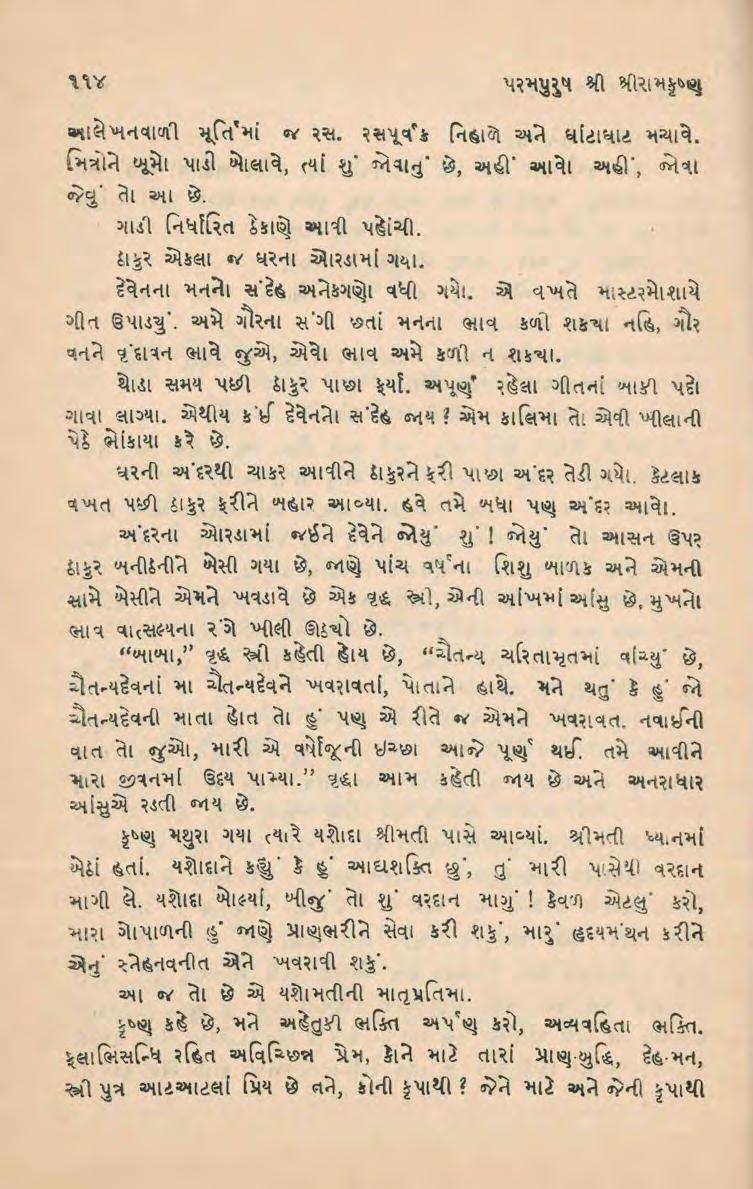 ૧૧૪ પરમપુરુષ શ્રી શ્રીરામકૃષ્ણ
આલેખનવાળી મૂર્તિમાં જ રસ. રસપૂર્વક નિહાળે અને ઘાંટાઘાટ મચાવે.
મિત્રોને બૂમો પાડી બોલાવે, ત્યાં શું જોવાનું છે, અહીં આવો અહીં, જોવા
જેવું તો આ છે.
ગાડી નિર્ધારિત ઠેકાણે આવી પહોંચી.
ઠાકુર એકલા જ ઘરના ઓરડામાં ગયા.
દેવેનના મનનો સંદેહ અનેકગણો વધી ગયો. એ વખતે માસ્ટરમોશાયે
ગીત ઉપાડયું. અમે ગૌરના સંગી છતાં મનના ભાવ કળી શકયા નહિ, ગૌર
વનને વૃંદાવન ભાવે જુએ, એવો ભાવ અમે કળી ન શકયા.
થોડા સમય પછી ઠાકુર પાછા ફર્યા. અપૂર્ણ રહેલા ગીતનાં બાકી પદો
ગાવા લાગ્યા. એથીય કંઈ દેવેનનો સંદેહ જાય ? એમ કાલિમા તો એવી ખીલાની
પેઠે ભોંકાયા કરે છે.
ઘરની અંદરથી ચાકર આવીને ઠાકુરને ફરી પાછા અંદર તેડી ગયો. કેટલાક
વખત પછી ઠાકુર ફરીને બહાર આવ્યા. હવે તમે બધા પણ અંદર આવો.
અંદરના ઓરડામાં જઈને દેવેને જોયું શું ! જોયું તો આસન ઉપર
ઠાકુર બનીઠનીને બેસી ગયા છે, જાણે પાંચ વર્ષના શિશુ બાળક અને એમની
સામે બેસીને એમને ખવડાવે છે એક વૃદ્ધ સ્ત્રી, એની આંખમાં આંસુ છે, મુખનો
ભાવ વાત્સલ્યના રંગે ખીલી ઊઠ્યો છે.
“બાબા,” વૃદ્ધ સ્ત્રી કહેતી હોય છે, “ચૈતન્ય ચરિતામૃતમાં વાંચ્યું છે,
ચૈતન્યદેવનાં મા ચૈતન્યદેવને ખવરાવતાં, પોતાને હાથે. મને થતું કે હું જો
ચૈતન્યદેવની માતા હોત તો હું પણ એ રીતે જ એમને ખવરાવત. નવાઈની
વાત તો જુઓ, મારી એ વર્ષોજૂની ઇચ્છા આજે પૂર્ણ થઈ. તમે આવીને
મારા જીવનમાં ઉદય પામ્યા.” વૃદ્ધા આમ કહેતી જાય છે અને અનરાધાર
આંસુએ રડતી જાય છે.
કૃષ્ણ મથુરા ગયા ત્યારે યશોદા શ્રીમતી પાસે આવ્યાં. શ્રીમતી ધ્યાનમાં
બેઠાં હતાં. યશોદાને કહ્યું કે હું આદ્યશક્તિ છું, તું મારી પાસેથી વરદાન
માગી લે. યશોદા બોલ્યાં, બીજું તો શું વરદાન માગું ! કેવળ એટલું કરો,
મારા ગોપાળની હું જાણે પ્રાણભરીને સેવા કરી શકું, મારું હૃદયમંથન કરીને
એનું સ્નેહનવનીત એને ખવરાવી શકું.
આ જ તો છે એ યશોમતીની માતૃપ્રતિમા.
કૃષ્ણ કહે છે, મને અહેતુકી ભક્તિ અર્પણ કરો, અવ્યવહિતા ભક્તિ.
ફલાભિસન્ધિ રહિત અવિચ્છિન્ન પ્રેમ, કોને માટે તારાં પ્રાણ-બુદ્ધિ, દેહ-મન,
સ્ત્રી પુત્ર આટઆટલાં પ્રિય છે તને, કોની કૃપાથી ? જેને માટે અને જેની કૃપાથી